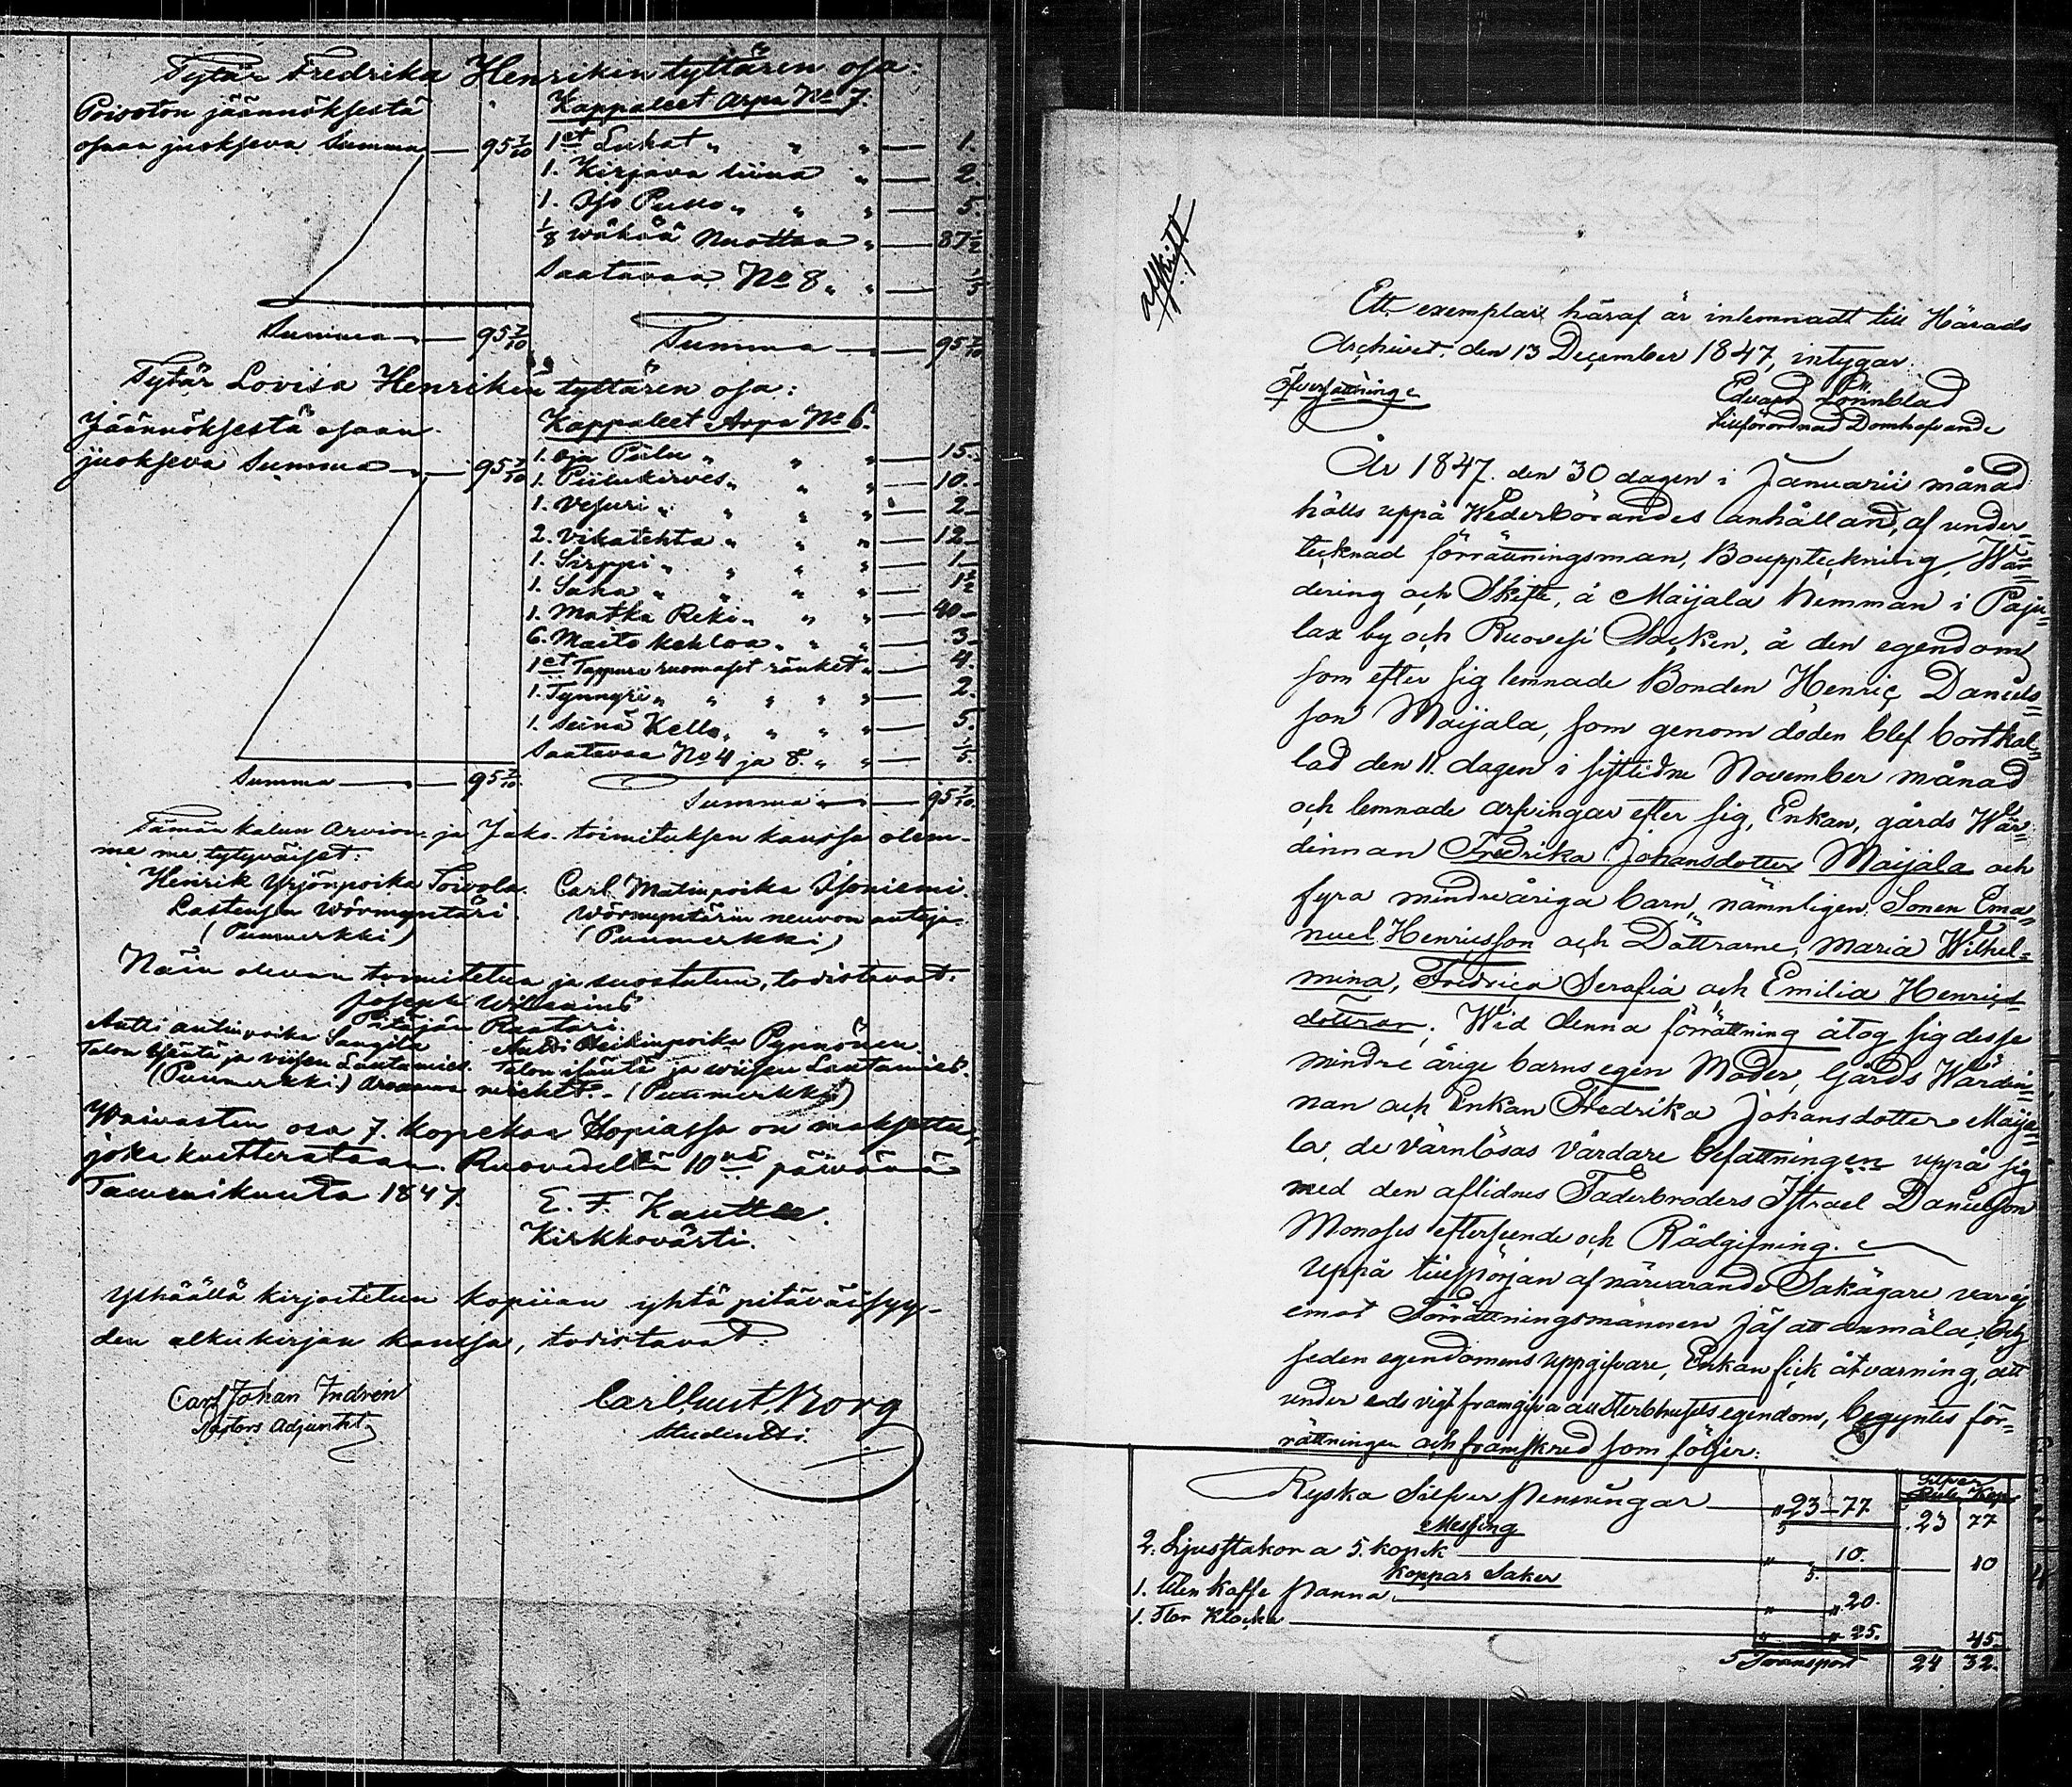 Tytär Fredrika Henrikin tyttären osa:
Poisoton jäännöksestä
osaan juokseva Summa — 95 7/10
Summa — 95 7/10
Kappaleet Arpa No 7.
1et Luhat „ „ „ — 1.
1. Kirjava liina „ — 2.
1. Iso Puuro „ „ „ — 5.
1/8 wähää Nuottaa „ — 87 1/2
Saatavaa No 8 „ „ — 1/5
Summa — 95 7/10
Tytär Lovisa Henrikin tyttären osa:
Jäännöksestä osaan
juokseva Summa — 95 7/10
Summa — 95 7/10
Kappaleet Arpa No 6.
1. oja Piilu „ „ „ — 15.
1. Piilukirves „ „ „ — 10.
1. Vesuri „ „ „ „ — 2
2. Vikatehta „ „ „ — 12
1. Sirppi „ „ „ „ — 1
1. Saha „ „ „ „ — 1 1/2
1. Matka Reki „ „ „ — 40
6. Maito kehloa „ „ „ — 3
1et Tappura suomaset ränket „ — 4.
1. Tynnyri „ „ „ „ „ — 2.
1. Seinä Kello „ „ „ „ — 5.
Saatavaa No 4 ja 8. „ „ — 1/5
Summa — 95 7/10.
Tämän kalun Arvion ja Jako-toimituksen kanssa olem-
me me tytyväiset:
Henrik Yrjönpoika Toivola. Carl Matinpoika Isoniemi.
Lastensen Wörmyntäri. Wörmyntärin neuvon antaja
(Puumerkki) (Puumerkki)
Näin olevan toimitetun ja suostutun, todistavat.
Joseph Willenius
Pitäjän Raatari.
Antti antinpoika Antti Heikinpoika Pynnönen.
Talon Isäntä ja viisen Lautamies. Talon isäntä ja wiisen Lautamies.
(Puumerkki) Arvioma miehet. - (Puumerkki)
Waivasten osa 7. kopekaa Hopiassa on maksettu,
joka kuitterataan. Ruovedeltä 10nä päivänä
Tammikuuta 1847.
E. F. Kauttu.
Kirkkovärti.
Ylhäällä kirjoitetun kopiian yhtä pitäväisyy-
den alkukirjan kanssa, todistavat:
Carl Johan Indrén
Pastors Adjunkt
Carl Aust. Borg
Studenti.
afskrift
Ett exemplar häraf är inlemnadt till Härads
Archivet, den 13 December 1847, intygar
Edvard Lönnblad
tillförordnad Domhafvande
Öfversättning.
År 1847. den 30 dagen i Januarii månad
hölls uppå Wederbörandes anhållan, af under-
tecknad förrättningsman, Bouppteckning, Wär-
dering och Skifte, å Maijala hemman i Paju-
lax by och Ruovesi Socken, å den egendom
som efter sig lemnade Bonden Henric Daniels-
son Maijala, som genom döden blef bortkal-
lad den 11. dagen i sistlidne November månad
och lemnade arfvingar efter sig, Enkan, gårds Wär-
dinnan Fredrika Johansdotter Maijala och
fyra mindreåriga barn, nämnligen: Sonen Ema-
nuel Henricsson och Döttrarne, Maria Wilhel-
mina, Fredrica Serafia och Emilia Henrics-
döttrar. Wid denna förrättning åtog sig desse
mindre årige barns egen Moder, Gårds Wärdin-
nan och Enkan Fredrika Johansdotter Maija-
la, de värnlösas Vårdare befattningen uppå sig
med den aflidnes Faderbroders Istrael Danielsson
Monoses efterseende och Rådgifning.
Uppå tillspörjan af närvarande Sakägare var ej
emot Förrättningsmännen jäf att anmäla; Och
sedan egendomens uppgifvare, Enkan fick åtvarning, att
under eds vigt framgifva all Sterbhusets egendom, begyntes för-
rättningen och framskred som följer:
Silfver
Rub. Kop.
Ryska Silfver Penningar — „ 23 — 77 23 77
Messing
2. Ljusstakor a 5. kopek — „ 10. 10
Koppar Saker
1. Liten kaffe Panna — „ „ 20.
1. Stor Klocka — „ „ 25. 45.
Transport 24 32.